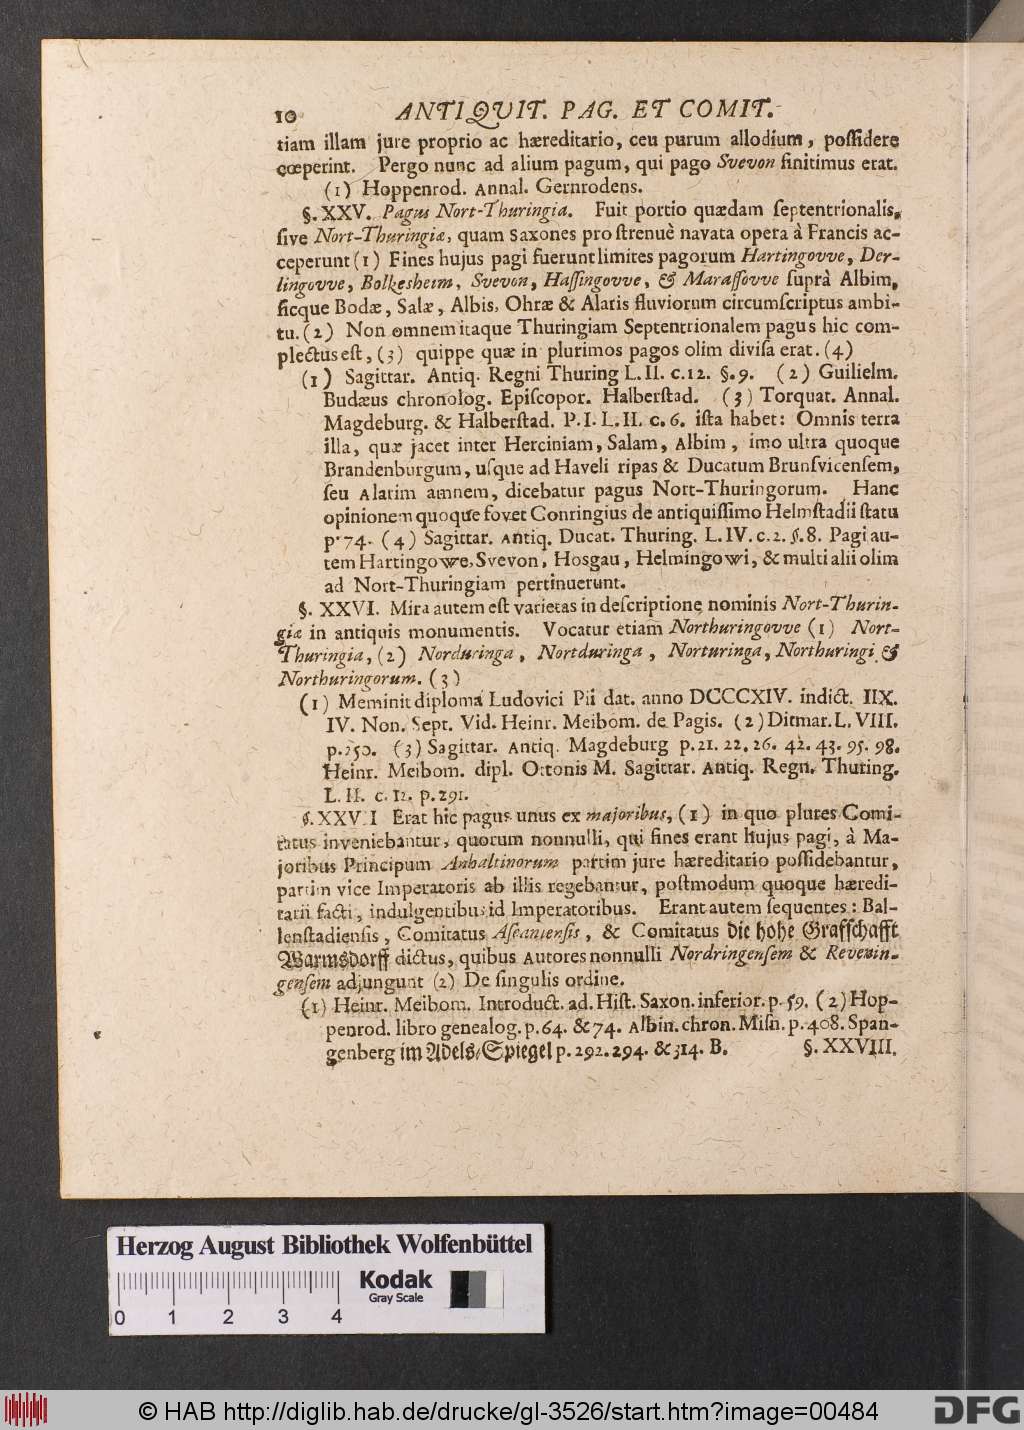 10 ANTIQUIT. PAG. ET COMIT.
tiam illam jure proprio ac hæreditario, ceu purum allodium, poſſidere
cœperint. Pergo nunc ad alium pagum, qui pago Svevon finitimus erat.
(1) Hoppenrod. Annal. Gernrodens.
§. XXV. Pagus Nort-Thuringia. Fuit portio quædam ſeptentrionalis,
ſive Nort-Thuringiæ, quam Saxones pro ſtrenuè navata opera à Francis ac-
ceperunt (1) Fines hujus pagi fuerunt limites pagorum Hartingovve, Der-
lingovve, Bolkesheim, Svevon, Haſſingovve, & Maraſſovve ſuprà Albim,
ſicque Bodæ, Salæ, Albis, Ohræ & Alaris fluviorum circumſcriptus ambi-
tu. (2) Non omnem itaque Thuringiam Septentrionalem pagus hic com-
plectus eſt, (3) quippe quæ in plurimos pagos olim diviſa erat. (4)
(1) Sagittar. Antiq. Regni Thuring L. II. c. 12. §. 9. (2) Guilielm.
Budæus chronolog. Epiſcopor. Halberſtad. (3) Torquat. Annal.
Magdeburg. & Halberſtad. P. I. L. II. c. 6. iſta habet: Omnis terra
illa, quæ jacet inter Herciniam, Salam, Albim, imo ultra quoque
Brandenburgum, uſque ad Haveli ripas & Ducatum Brunſvicenſem,
ſeu Alarim amnem, dicebatur pagus Nort-Thuringorum. Hanc
opinionem quoque fovet Conringius de antiquiſſimo Helmſtadii ſtatu
p. 74. (4) Sagittar. Antiq. Ducat. Thuring. L. IV. c. 2. §. 8. Pagi au-
tem Hartingowe, Svevon, Hosgau, Helmingowi, & multi alii olim
ad Nort-Thuringiam pertinuerunt.
§. XXVI. Mira autem eſt varietas in deſcriptione nominis Nort-Thurin-
giæ in antiquis monumentis. Vocatur etiam Northuringovve (1) Nort-
Thuringia, (2) Norduringa, Nortduringa, Norturinga, Northuringi &
Northuringorum. (3)
(1) Meminit diploma Ludovici Pii dat. anno DCCCXIV. indict. IIX.
IV. Non. Sept. Vid. Heinr. Meibom. de Pagis. (2) Ditmar. L. VIII.
p. 250. (3) Sagittar. Antiq. Magdeburg p. 21. 22. 26. 42. 43. 95. 98.
Heinr. Meibom. dipl. Ottonis M. Sagittar. Antiq. Regn. Thuring.
L. II. c. 12. p. 291.
§. XXV I Erat hic pagus unus ex majoribus, (1) in quo plures Comi-
tatus inveniebantur, quorum nonnulli, qui fines erant hujus pagi, à Ma-
joribus Principum Anhaltinorum partim jure hæreditario poſſidebantur,
partim vice Imperatoris ab illis regebantur, poſtmodum quoque hæredi-
tarii facti, indulgentibus id Imperatoribus. Erant autem ſequentes: Bal-
lenſtadienſis, Comitatus Aſcanienſis, & Comitatus die hohe Graffſchafft
Warmsdorff dictus, quibus Autores nonnulli Nordringenſem & Revenin-
genſem adjungunt (2) De ſingulis ordine.
(1) Heinr. Meibom. Introduct. ad. Hiſt. Saxon. inferior. p. 59. (2) Hop-
penrod. libro genealog. p. 64. & 74. Albin. chron. Miſn. p. 408. Span-
genberg im Adels-Spiegel p. 292. 294. & 314. B. §. XXVIII.
Herzog August Bibliothek Wolfenbüttel
Kodak
Gray Scale
0 1 2 3 4
© HAB http://diglib.hab.de/drucke/gl-3526/start.htm?image=00484
DFG